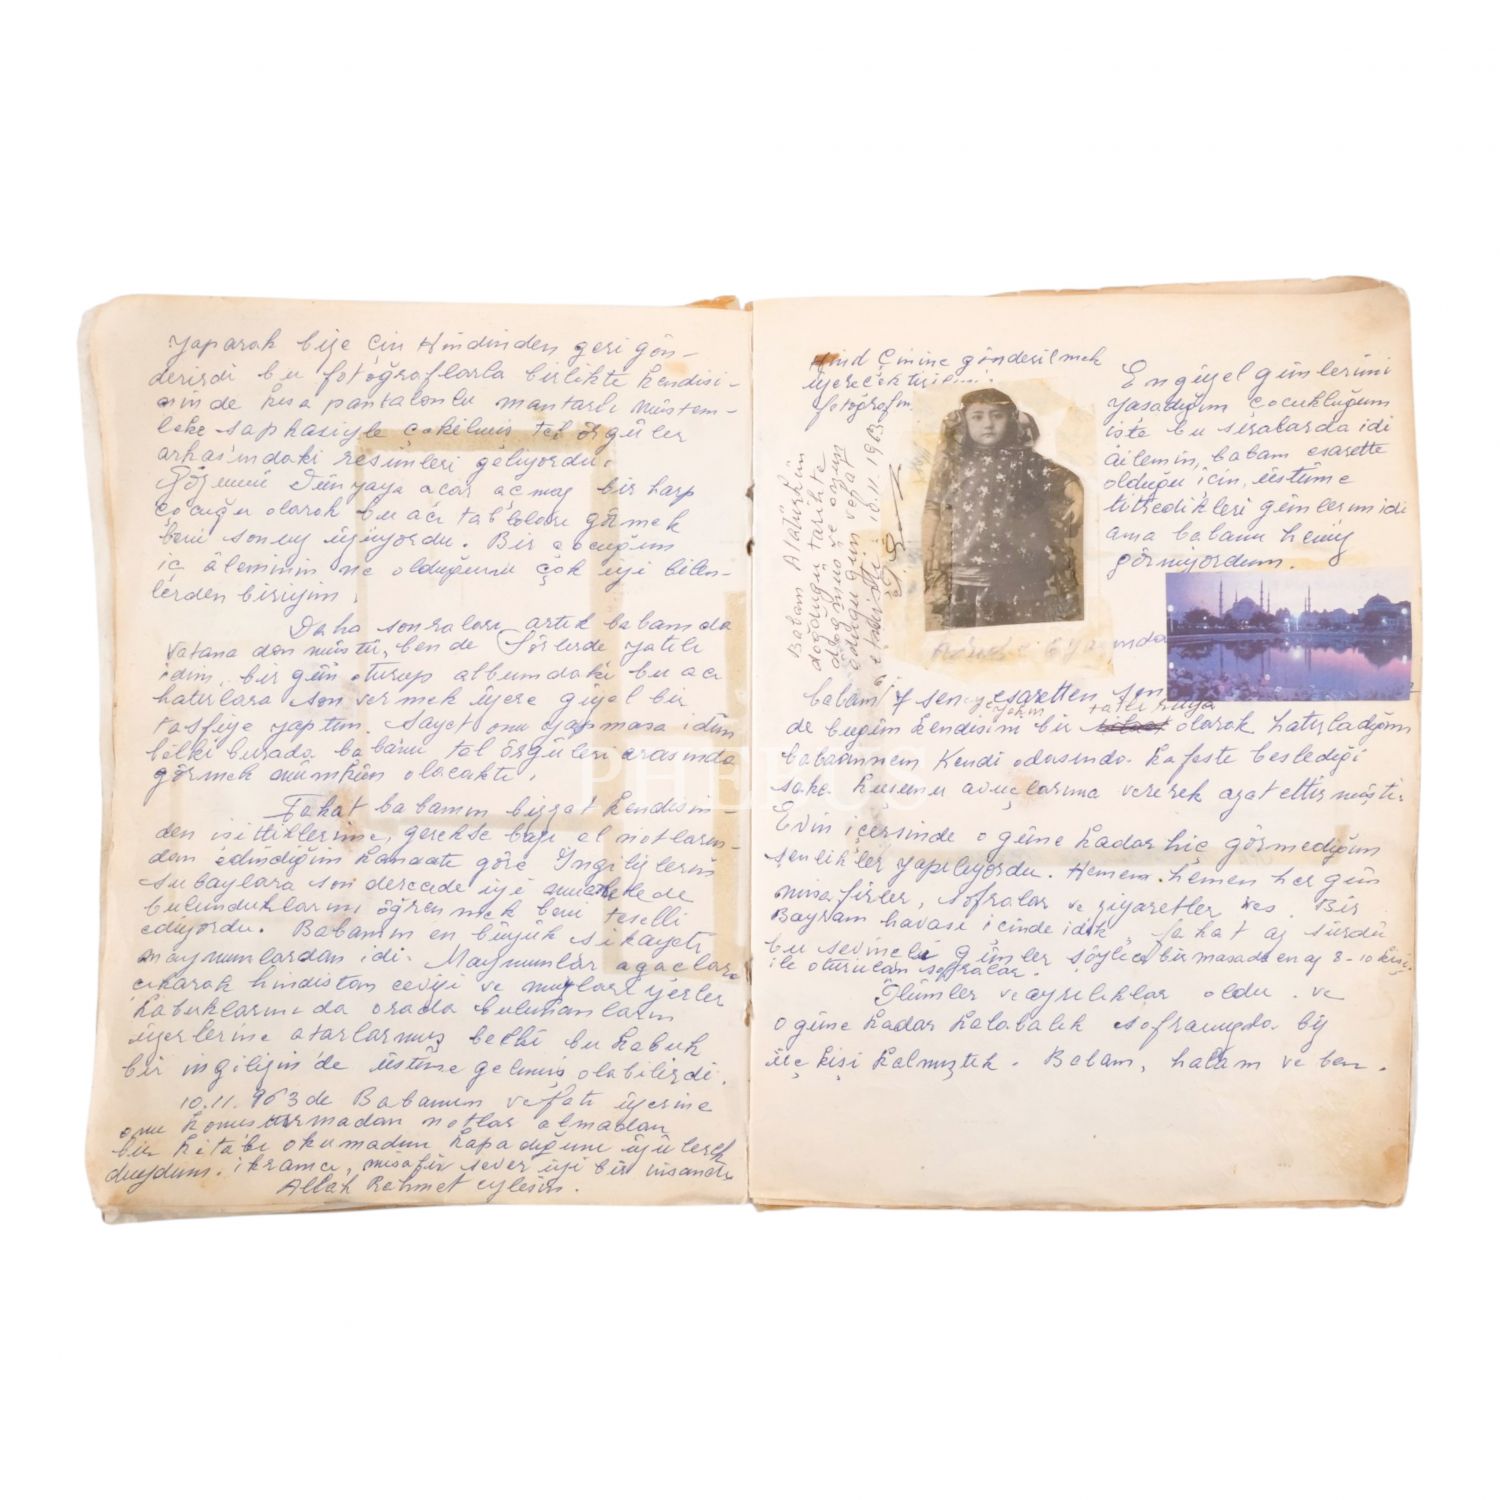 yaparak bize Çin Hindinden geri gön-
derirdi bu fotoğraflarla birlikte kendisi-
ninde kısa pantalonlu mantarlı müstem-
leke şapkasiyle çekilmiş tel örgüler
arkasındaki resimleri geliyordu.
Gözümü Dünyaya açar açmaz bir harp
çocuğu olarak bu acı tabloları görmek
beni sonsuz üzüyordu. Bir çocuğun
iç âleminin ne olduğunu çok iyi bilen-
lerden biriyim.
Daha sonraları artık babamda
Vatana dönmüştü, bende Sörlerde yatılı
idim, bir gün oturup albumdaki bu acı
hatırlara son vermek üzere güzel bir
tasfiye yaptım. Şayet onu yapmasa idim
belki burada babamı tel örgüleri arasında
görmek mümkün olacaktı.
Fakat babamın bizzat kendisin-
den işittiklerime, gerekse bazı el notların-
dan edindiğim kanaate göre İngilizlerin
subaylara son derecede iyi muamelede
bulunduklarını öğrenmek beni teselli
ediyordu. Babamın en büyük şikayeti
maymunlardan idi. Maymunlar ağaçlara
çıkarak hindistan cevizi ve muzları yerler
kabuklarınıda orada bulunanların
üzerlerine atarlarmış belki bu kabuk
bir ingilizin'de üstüne gelmiş olabilirdi.
10.11.963 de Babamın vefatı üzerine
onu konuşturmadan notlar almadan
bir kitabı okumadan kapadığımı üzülerek
duydum. ikramcı, misafir sever iyi bir insandı
Allah Rahmet eylesin.
Hind Çinine gönderilmek
üzere
fotoğrafım.
Babam Atatürkün
doğduğu tarihte
doğmuş ve onun
öldüğü gün vefat
etmişti 10.11.1963
En güzel günlerimi
yaşadığım çocukluğum
işte bu sıralarda idi
âilemin, babam esarette
olduğu için, üstüme
titredikleri günlerim idi
ama babamı henüz
görmüyordum.
babam 7 sene esaretten son
tatlı rüya
de bugün kendisini bir olarak hatırladığım
babaannem kendi odasında kafeste beslediği
saka kuşunu avuçlarıma vererek azat ettirmişti.
Evin içersinde o güne kadar hiç görmediğim
şenlikler yapılıyordu. Hemen hemen her gün
misafirler, sofralar ve ziyaretler ves. Bir
Bayram havası içinde idik, fakat az sürdü
bu sevinçli günler şöyle bir masada en az 8-10 kişi
ile oturulan sofralar.
Ölümler ve ayrılıklar oldu. ve
o güne kadar kalabalık soframızda biz
üç kişi kalmıştık. Babam, halam ve ben.